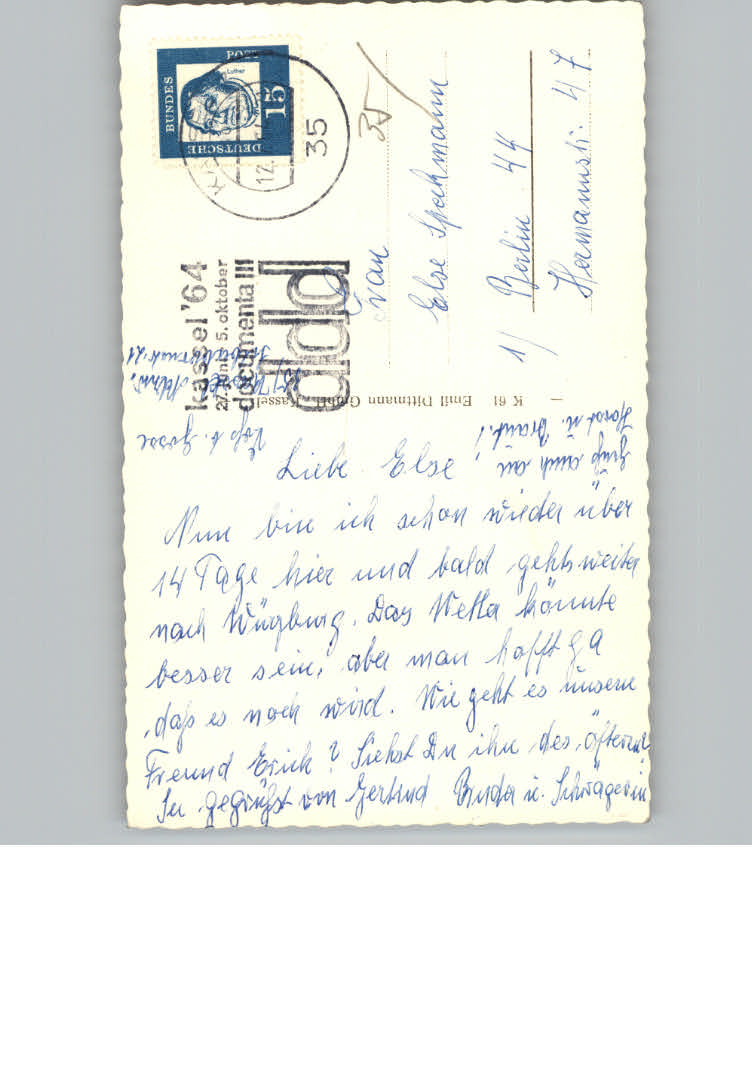 Liebe Else!
Nun bin ich schon wieder über
14 Tage hier und bald gehts weiter
nach Würzburg. Das Wetter könnte
besser sein, aber man hofft ja
daß es noch wird. Wie geht es unserm
Freund Erich? Siehst Du ihn des öfteren?
Sei gegrüßt von Gertrud Bruder u. Schwägerin
Gruß auch an
Horst u. Braut!
K 61 Emil Dittmann GmbH Kassel
kassel '64
27. juni 5. oktober
documenta III
ddd
35
12.
DEUTSCHE
BUNDES
POST
Luther
15
35
Frau
Else Spechmann
1/ Berlin 44
Hermannstr. 47